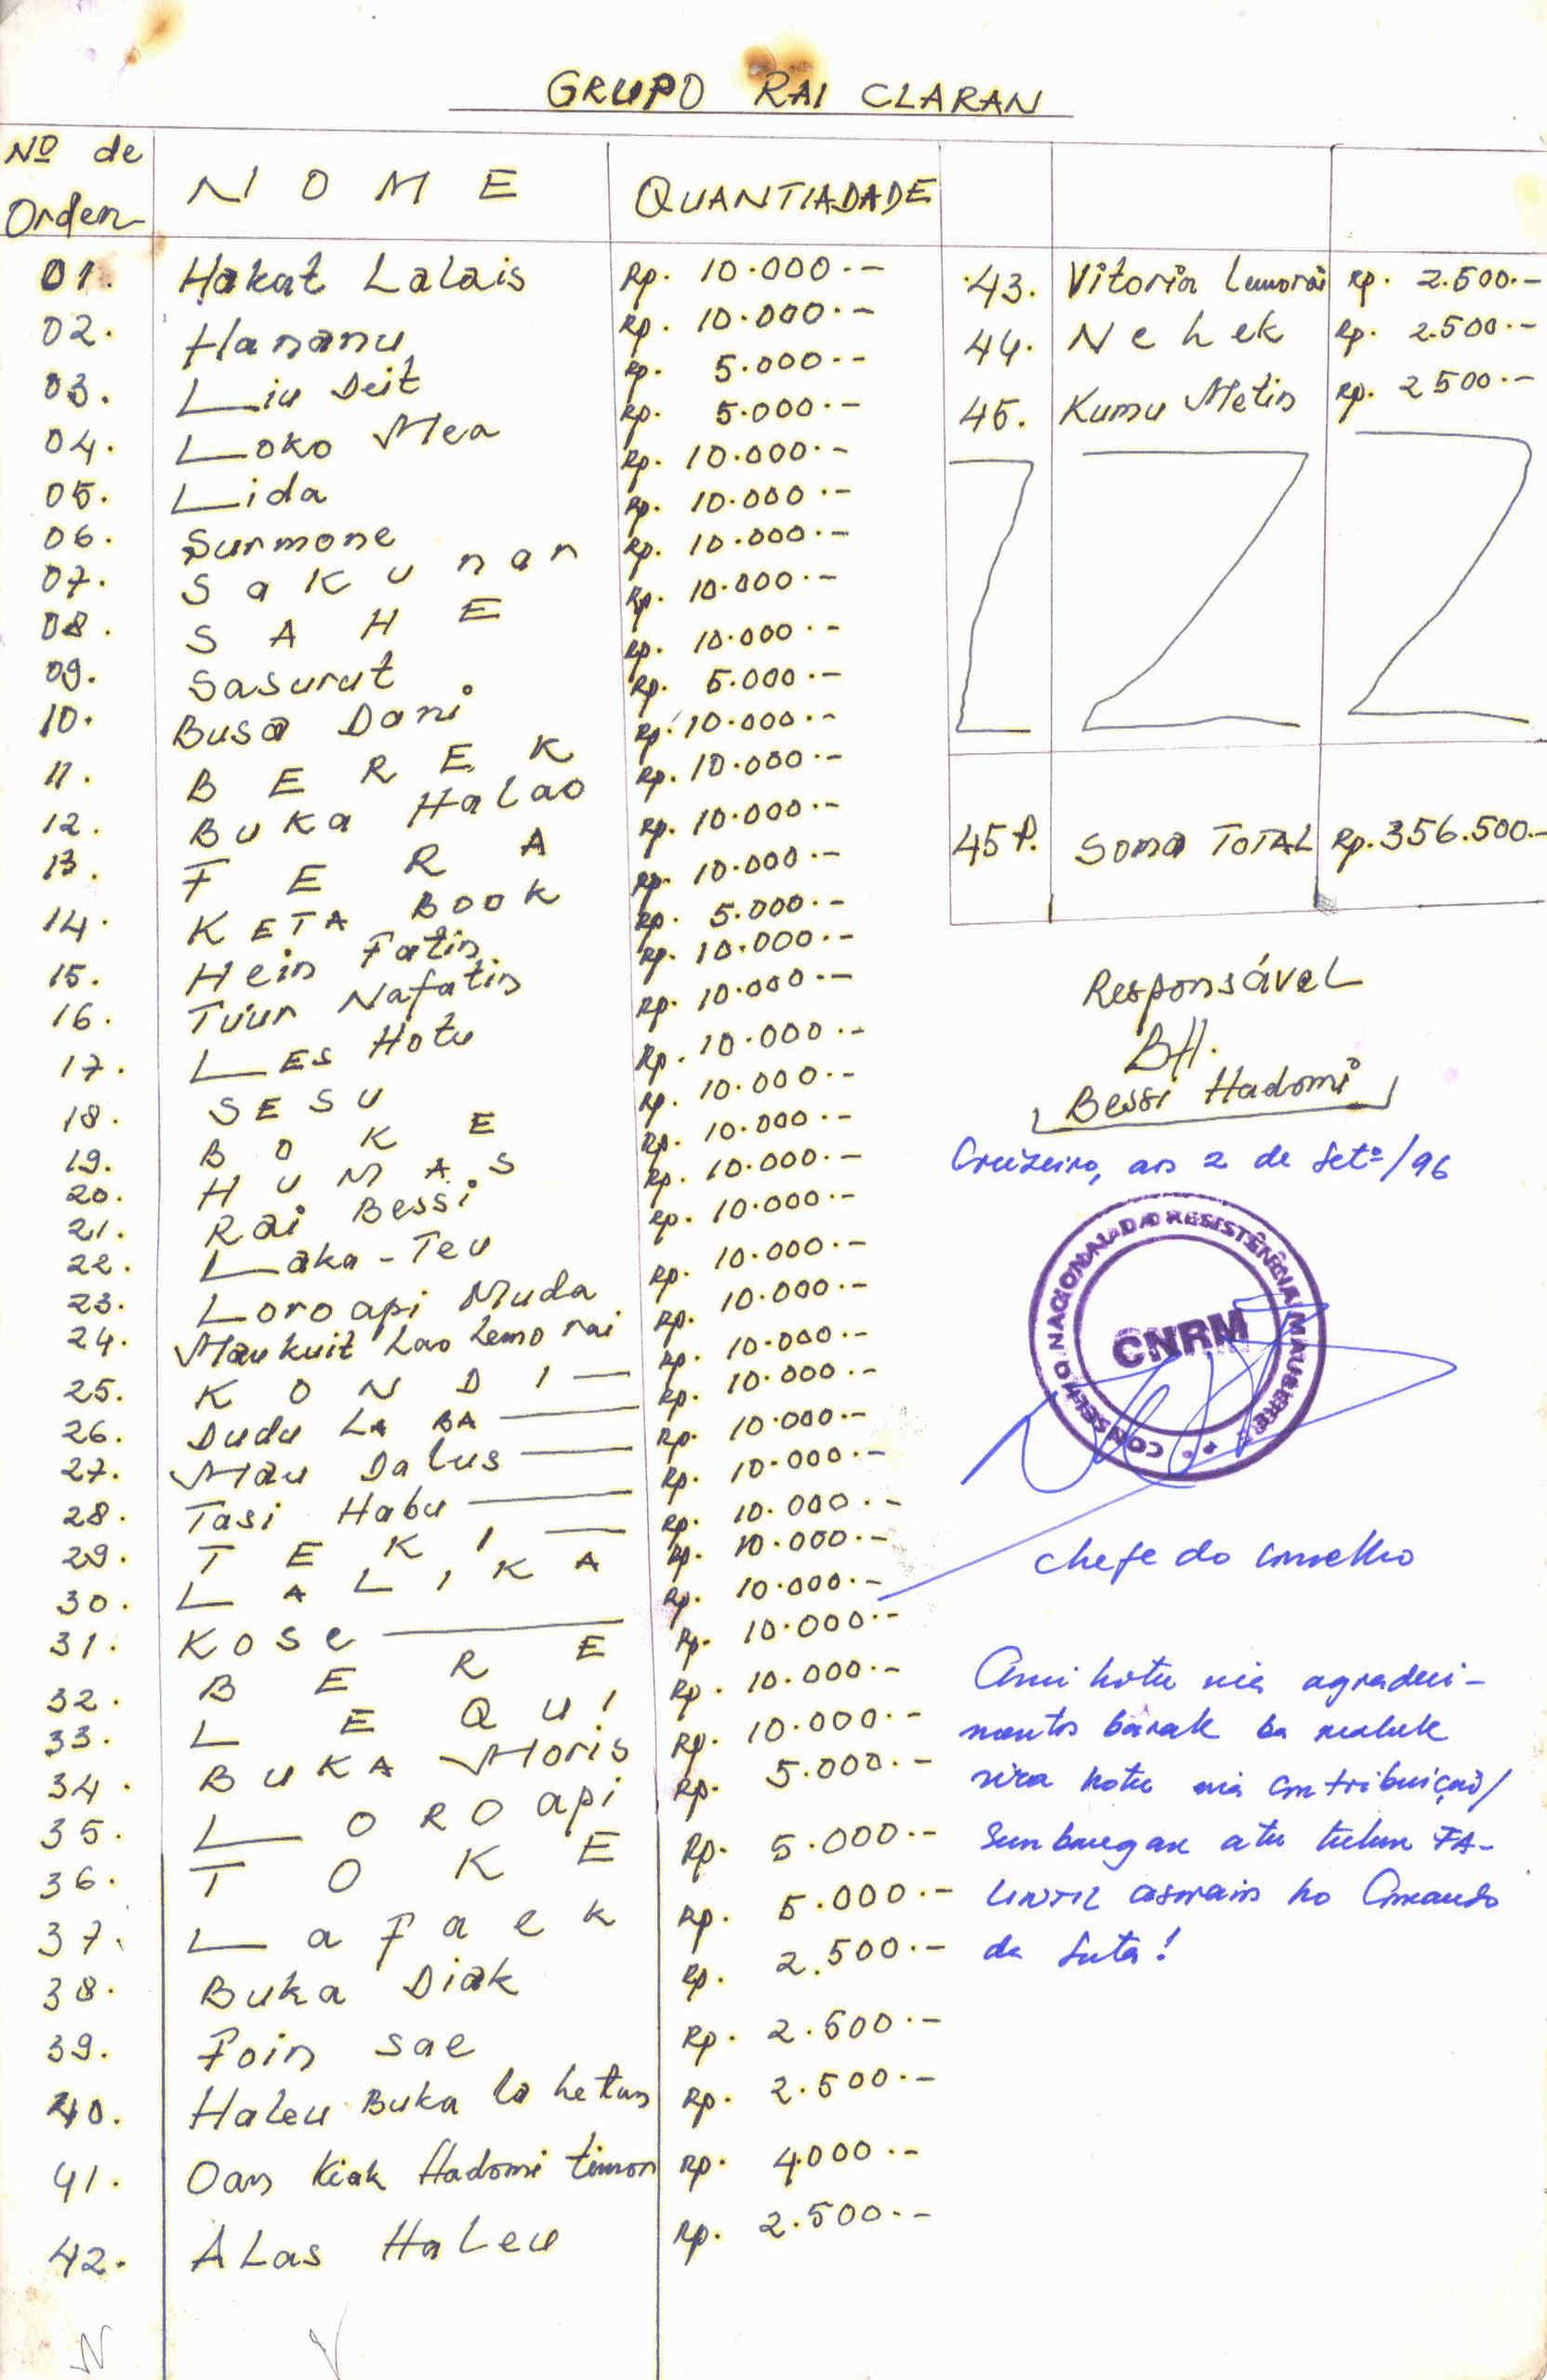 GRUPO RAI CLARAN
Nº de Orden NOME QUANTIADADE
01. Hakat Lalais Rp. 10.000.-
02. Hananu Rp. 10.000.-
03. Liu Deit Rp. 5.000.-
04. Loko Mea Rp. 5.000.-
05. Lida Rp. 10.000.-
06. Surmone Rp. 10.000.-
07. Sakunar Rp. 10.000.-
08. SAHE Rp. 10.000.-
09. Sasurut Rp. 10.000.-
10. Busa Dani Rp. 5.000.-
11. BEREK Rp. 10.000.-
12. BUKa HaLao Rp. 10.000.-
13. FERA Rp. 10.000.-
14. KETA BOOK Rp. 10.000.-
15. Hein Fatin Rp. 5.000.-
16. Tuur Nafatin Rp. 10.000.-
17. LES Hotu Rp. 10.000.-
18. SESU Rp. 10.000.-
19. BOKE Rp. 10.000.-
20. HUMAS Rp. 10.000.-
21. Rai Bessi Rp. 10.000.-
22. Laka-Teu Rp. 10.000.-
23. Loro api Muda Rp. 10.000.-
24. Maukuit Lao Lemo rai Rp. 10.000.-
25. KONDI Rp. 10.000.-
26. Dudu LA BA Rp. 10.000.-
27. Mau Dalus Rp. 10.000.-
28. Tasi Habu Rp. 10.000.-
29. TEKI Rp. 10.000.-
30. LALIKA Rp. 10.000.-
31. Kose Rp. 10.000.-
32. BERE Rp. 10.000.-
33. LEQUI Rp. 10.000.-
34. BUKA Moris Rp. 10.000.-
35. LORO api Rp. 5.000.-
36. TOKE Rp. 5.000.-
37. Lafaek Rp. 5.000.-
38. Buka Diak Rp. 2.500.-
39. Foin sae Rp. 2.500.-
40. Haleu Buka la hetan Rp. 2.500.-
41. Oan Kiak Hadomi timor Rp. 4.000.-
42. ALas HaLeu Rp. 2.500.-
43. Vitoria Lemorai Rp. 2.500.-
44. Nehek Rp. 2.500.-
45. Kumu Metin Rp. 2500.-
45 P. Soma TOTAL Rp. 356.500.-
Responsável
BH.
Bessi Hadomi
Cruzeiro, aos 2 de Setº/96
CONSELHO NACIONAL DA RESISTÊNCIA MAUBERE
CNRM
Chefe do Conselho
Ami hotu nia agradeci-
mentos barak ba maluk
sira hotu nia contribuição/
Sunbangan atu tulun FA-
LINTIL asswain ho Comando
da Luta!